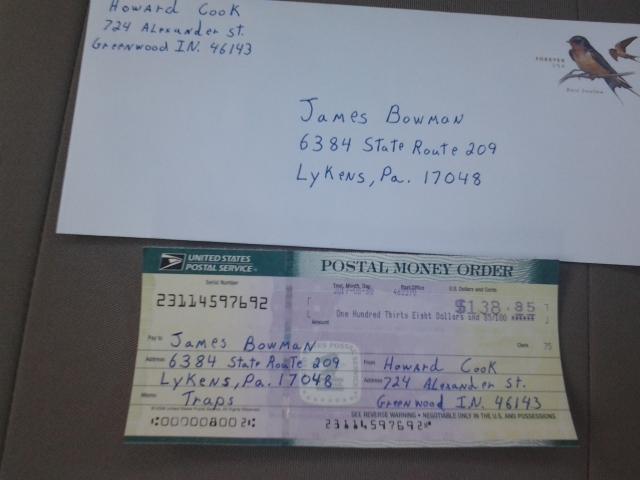 Howard Cook
724 Alexander St.
Greenwood IN. 46143
FOREVER
USA
Barn Swallow
James Bowman
6384 State Route 209
Lykens, Pa. 17048
UNITED STATES
POSTAL SERVICE
POSTAL MONEY ORDER
Serial Number
Year, Month, Day
Post Office
U.S. Dollars and Cents
23114597692
$138.85
Amount
One Hundred Thirty Eight Dollars and 85/100
Pay to James Bowman
Clerk 75
Address 6384 State Route 209
From Howard Cook
Lykens, Pa. 17048
Address 724 Alexander St.
Memo Traps
Greenwood IN. 46143
SEE REVERSE WARNING • NEGOTIABLE ONLY IN THE U.S. AND POSSESSIONS
000008002
23114597692